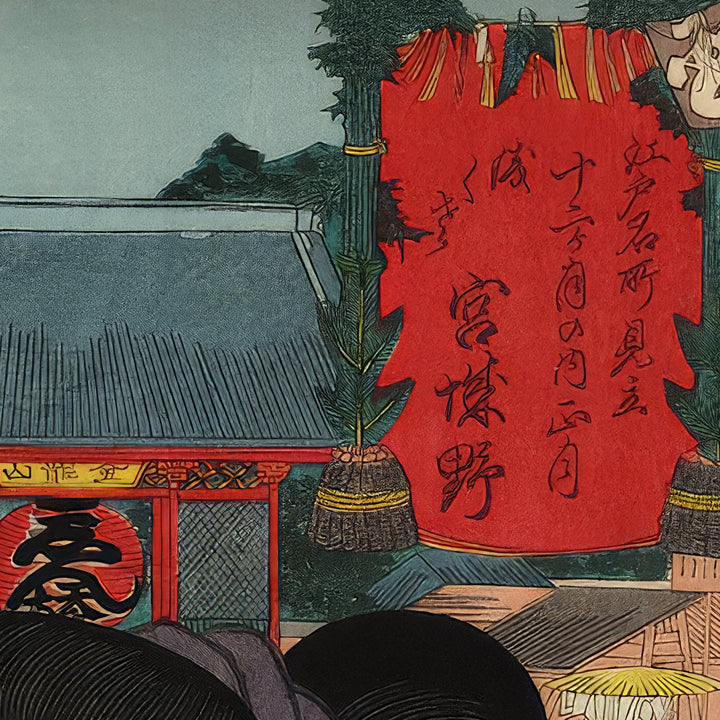 江戸名所見立
十二ヶ月の内 正月
浅
くさ
宮城野
金龍山